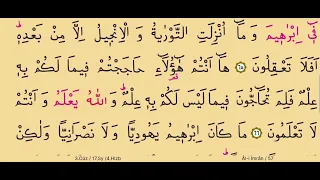 فٓى اِبْرٰه۪يمَ وَمَٓا اُنْزِلَتِ التَّوْرٰيةُ وَالْاِنْج۪يلُ اِلَّا مِنْ بَعْدِه۪ۜ
اَفَلَا تَعْقِلُونَ ﴿٦٥﴾ هَٓا اَنْتُمْ هٰٓؤُ۬لَٓاءِ حَاجَجْتُمْ ف۪يمَا لَكُمْ بِه۪
عِلْمٌ فَلِمَ تُحَٓاجُّونَ ف۪يمَا لَيْسَ لَكُمْ بِه۪ عِلْمٌۜ وَاللّٰهُ يَعْلَمُ وَاَنْتُمْ
لَا تَعْلَمُونَ ﴿٦٦﴾ مَا كَانَ اِبْرٰه۪يمُ يَهُودِيًّا وَلَا نَصْرَانِيًّا وَلٰكِنْ
3.Cüz / 17.Sy /4.Hizb Âl-i İmrân / 57